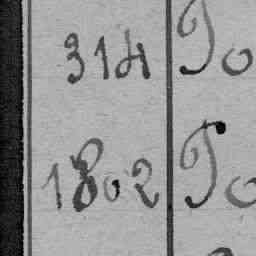 314 To
1802 To